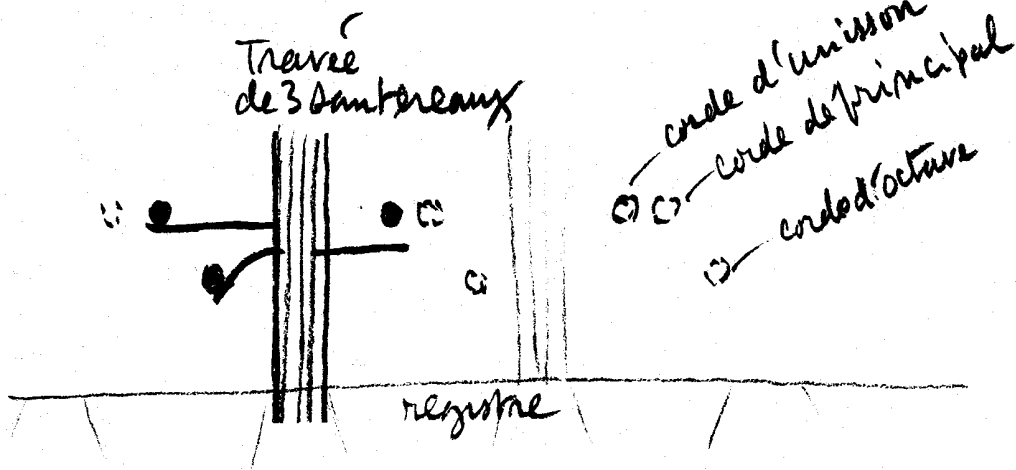 Travée
de 3 sautereaux
corde d'unisson
corde de principal
corde d'octave
registre